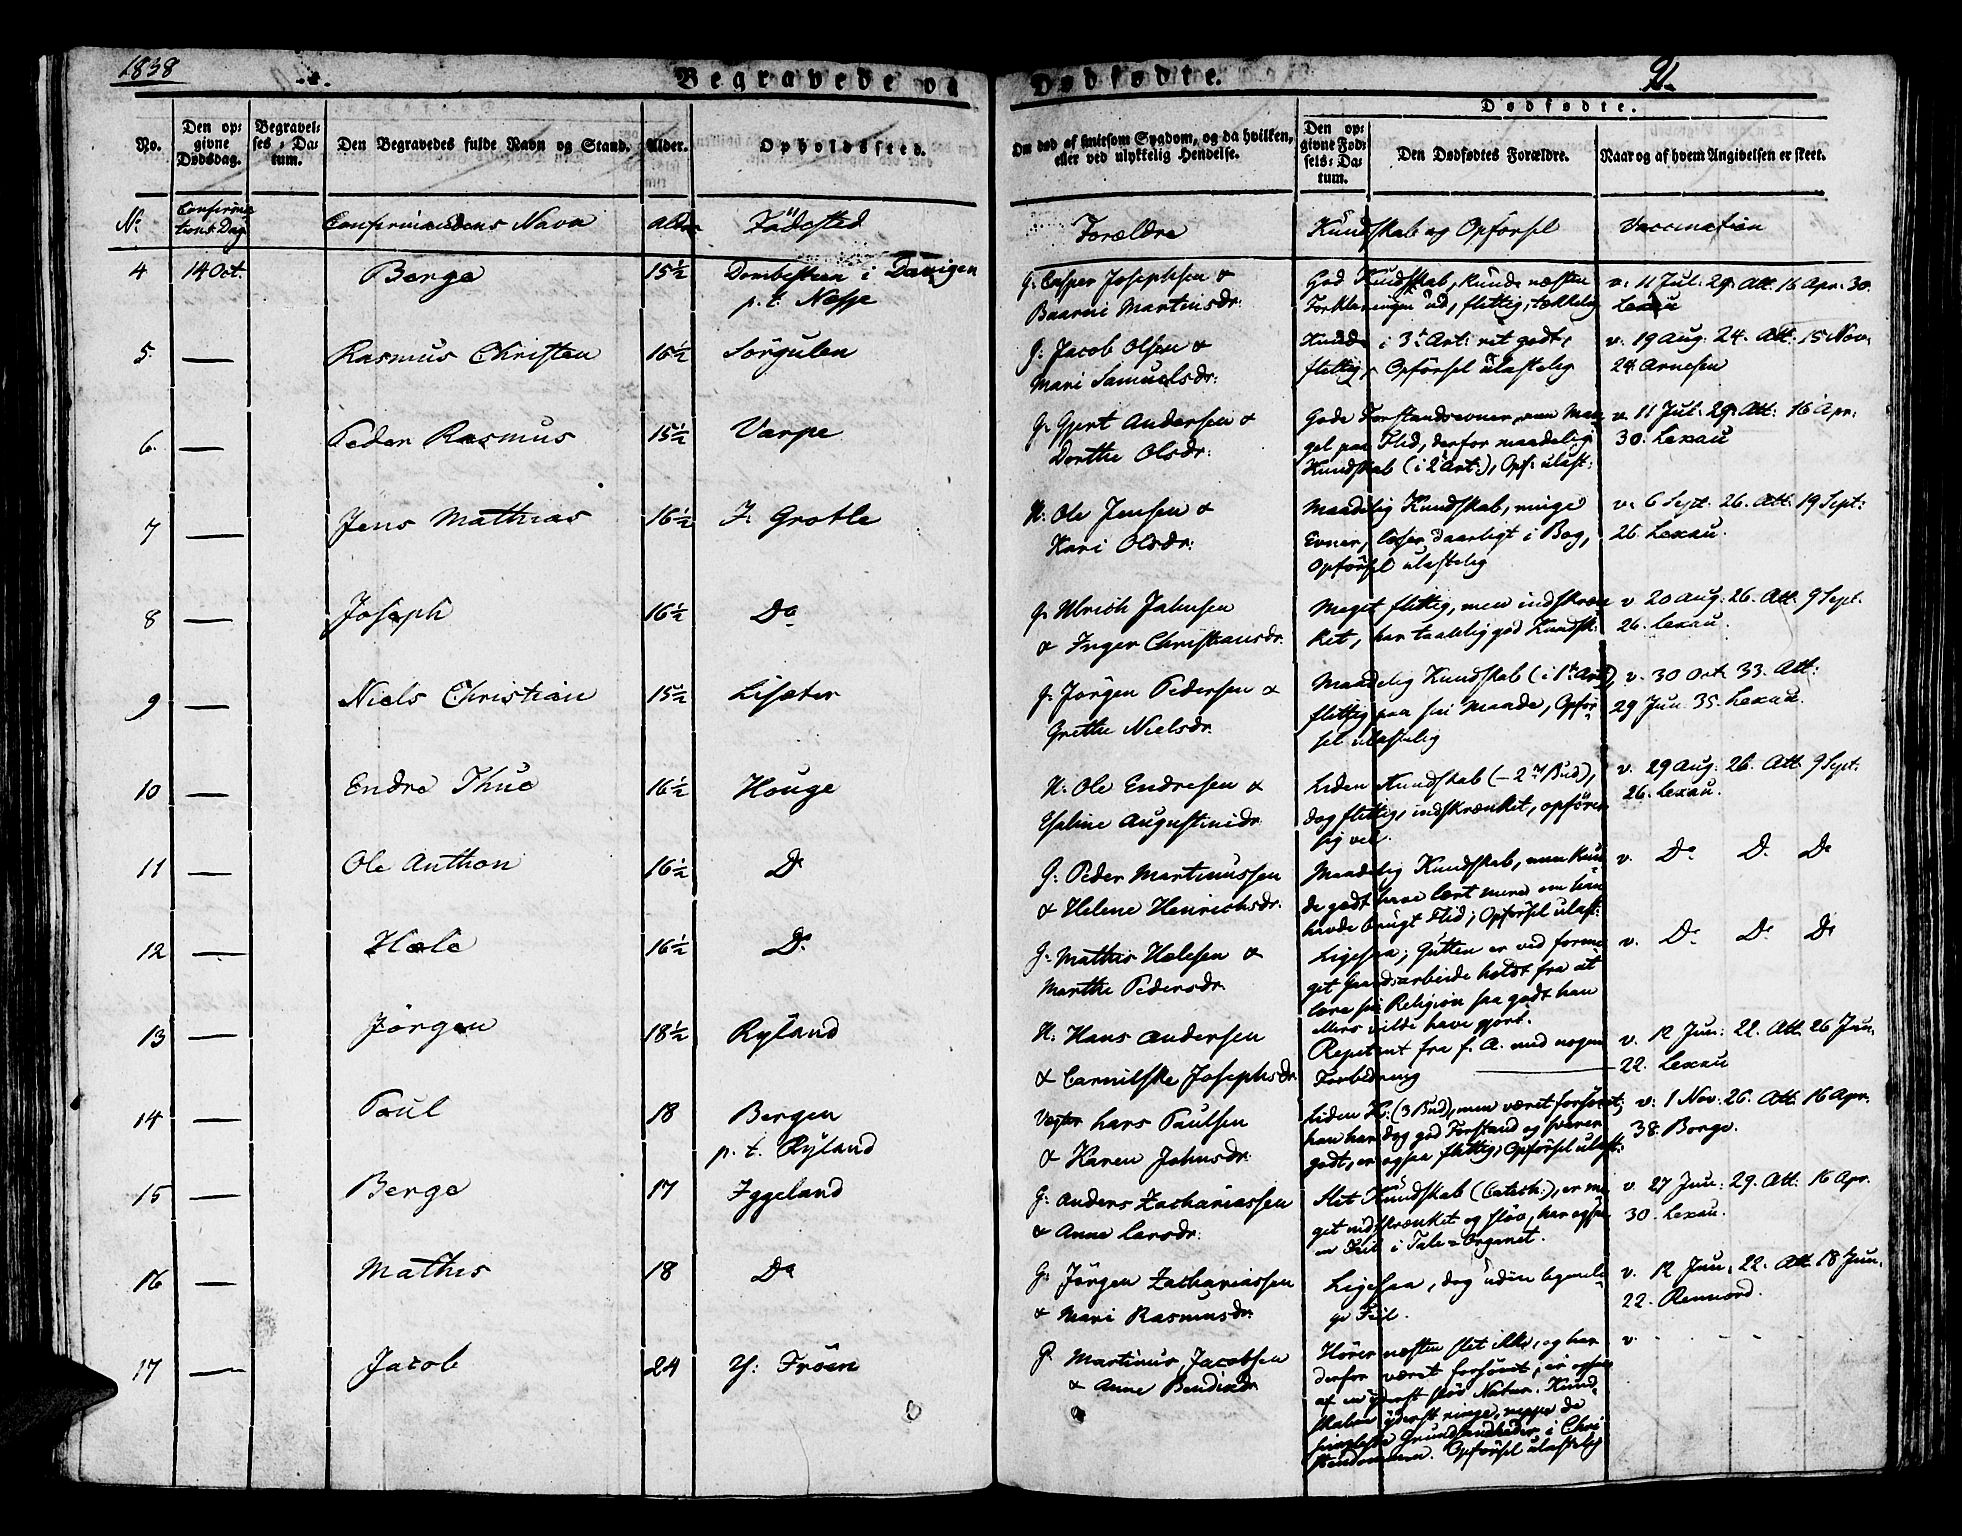 1838
Begravede og
Dødfødte.
No.
Den opgivne Dødsdag.
Begravelses-Datum.
Den Begravedes fulde Navn og Stand.
Alder.
Opholdssted.
Om død af smitsom Sygdom, og da hvilken, eller ved ulykkelig Hendelse.
Dødfødte.
Den opgivne Fødsels-Datum.
Den Dødfødtes Forældre.
Naar og af hvem Angivelsen er skeet.
No Confirmations Dag Confirmandens Navn Alder Födested Forældre Kundskab og Opførsel Vaccination
4 14 Oct. Berge 15½ Dombesteen i Davigen G: Casper Josephsen & God Kundskab, kunde næsten v. 11 Jul: 29. Att. 16 Apr. 30.
p. t. Nesse Baarni Martinsdr: Forklaringen ud, flittig, tækkelig Lexau
5. — Rasmus Christen 16½ Sörgulen G: Jacob Olsen & Kundsk i 3 Art: ret godt, v. 19 Aug. 24. Att. 15 Nov.
Mari Samuelsdr: flittig, Opførsel ulastelig 24. Arnesen
6. — Peder Rasmus 15½ Varpe G. Gjert Andersen & Gode Forstandsevner, men Man- v. 11 Jul: 29. Att: 16 Apr:
Dorthe Olsdr: gel paa Flid, derfor maadelig 30. Lexau
Kundskab (i 2 Art:), Opf: ulast:
7 — Jens Mathias 16½ I: Grotle H: Ole Jensen & Maadelig Kundskab, ringe v: 6 Sept. 26. Att. 19 Sept:
Kari Olsdr: Evner, læser daarligt i Bog, 26. Lexau.
Opførsel ulastelig
8 — Joseph 16½ Do G: Ulrich Jahnsen Meget flittig, men indskræn- v. 20 Aug: 26. Att. 9 Sept.
& Inger Christiansdr. ket, har taalelig god Kundsk: 26. Lexau.
9 — Niels Christian 15½ Lisæter G: Jörgen Pedersen & Maadelig Kundskab (i 1 Art), v. 30 Oct 33. Att:
Grethe Nielsdr. flittig paa sin Maade, Opför- 29 Jun 35. Lexau.
sel ulastelig
10 — Endre Thue 16½ Houge H: Ole Endresen & Liden Kundskab (- 2 Bud), v. 29 Aug: 26. Att. 9 Sept:
Augustinidr. dog flittig, indskrænket, opförer 26. Lexau.
sig vel.
11 — Ole Anthon 16½ Do G: Peder Martinussen Maadelig Kundskab, men kun- v. Do Do Do
& Helene Henrichsdr. de godt have lært mere om han
havde brugt Flid; Opførsel ulast:
12 — Hæle 16½ Do G: Mathis Hælesen & Ligesaa; Gutten er ved forme- v. Do Do Do
Marthe Pedersdr. get Gaardsarbeide holdt fra at
lære sin Religion saa godt han
ellers vilde have gjort.
13 — Jörgen 18½ Ryland H: Hans Andersen Repetent fra f. A. med nogen v. 12 Jun: 22. Att. 26 Jun:
& Josephsdr. Forbedring 22. Lexau
14 — Paul 18 Bergen Lars Paulsen Liden K: (3 Bud), men været forsömt, v: 1 Nov: 26. Att 16 Apr.
p. t. Ryland & Karen Jahnsdr. han har dog god Forstand og svarer 38. Borge.
godt, er ogsaa flittig, Opførsel ulast:
15 — Berge 17 Yggeland G: Anders Zachariassen Slet Kundskab (Catech:), er me- v. 27 Jun: 29. Att. 16 Apr.
& Anne Larsdr: get indskrænket og slöv, har ogsaa 30. Lexau.
en Feil i Tale-Organet.
16 — Mathis 18 Do G: Jörgen Zachariassen Ligesaa, dog uden legemli- v. 12 Jun: 22. Att. 18 Jun.
& Mari Rasmusdr. ge Feil. 22. Rennord.
17 — Jacob 24 Y: Fröen P. Martinus Jacobsen Hører næsten slet ikke, og har v
& Anne Bendixdr. derfor været forsömt; er ogsaa
af en yderst slöv Natur. Kund-
skaben yderst ringe, neppe de
simpleste Grundsandheder i Chri-
stendommen. Opførsel ulastelig